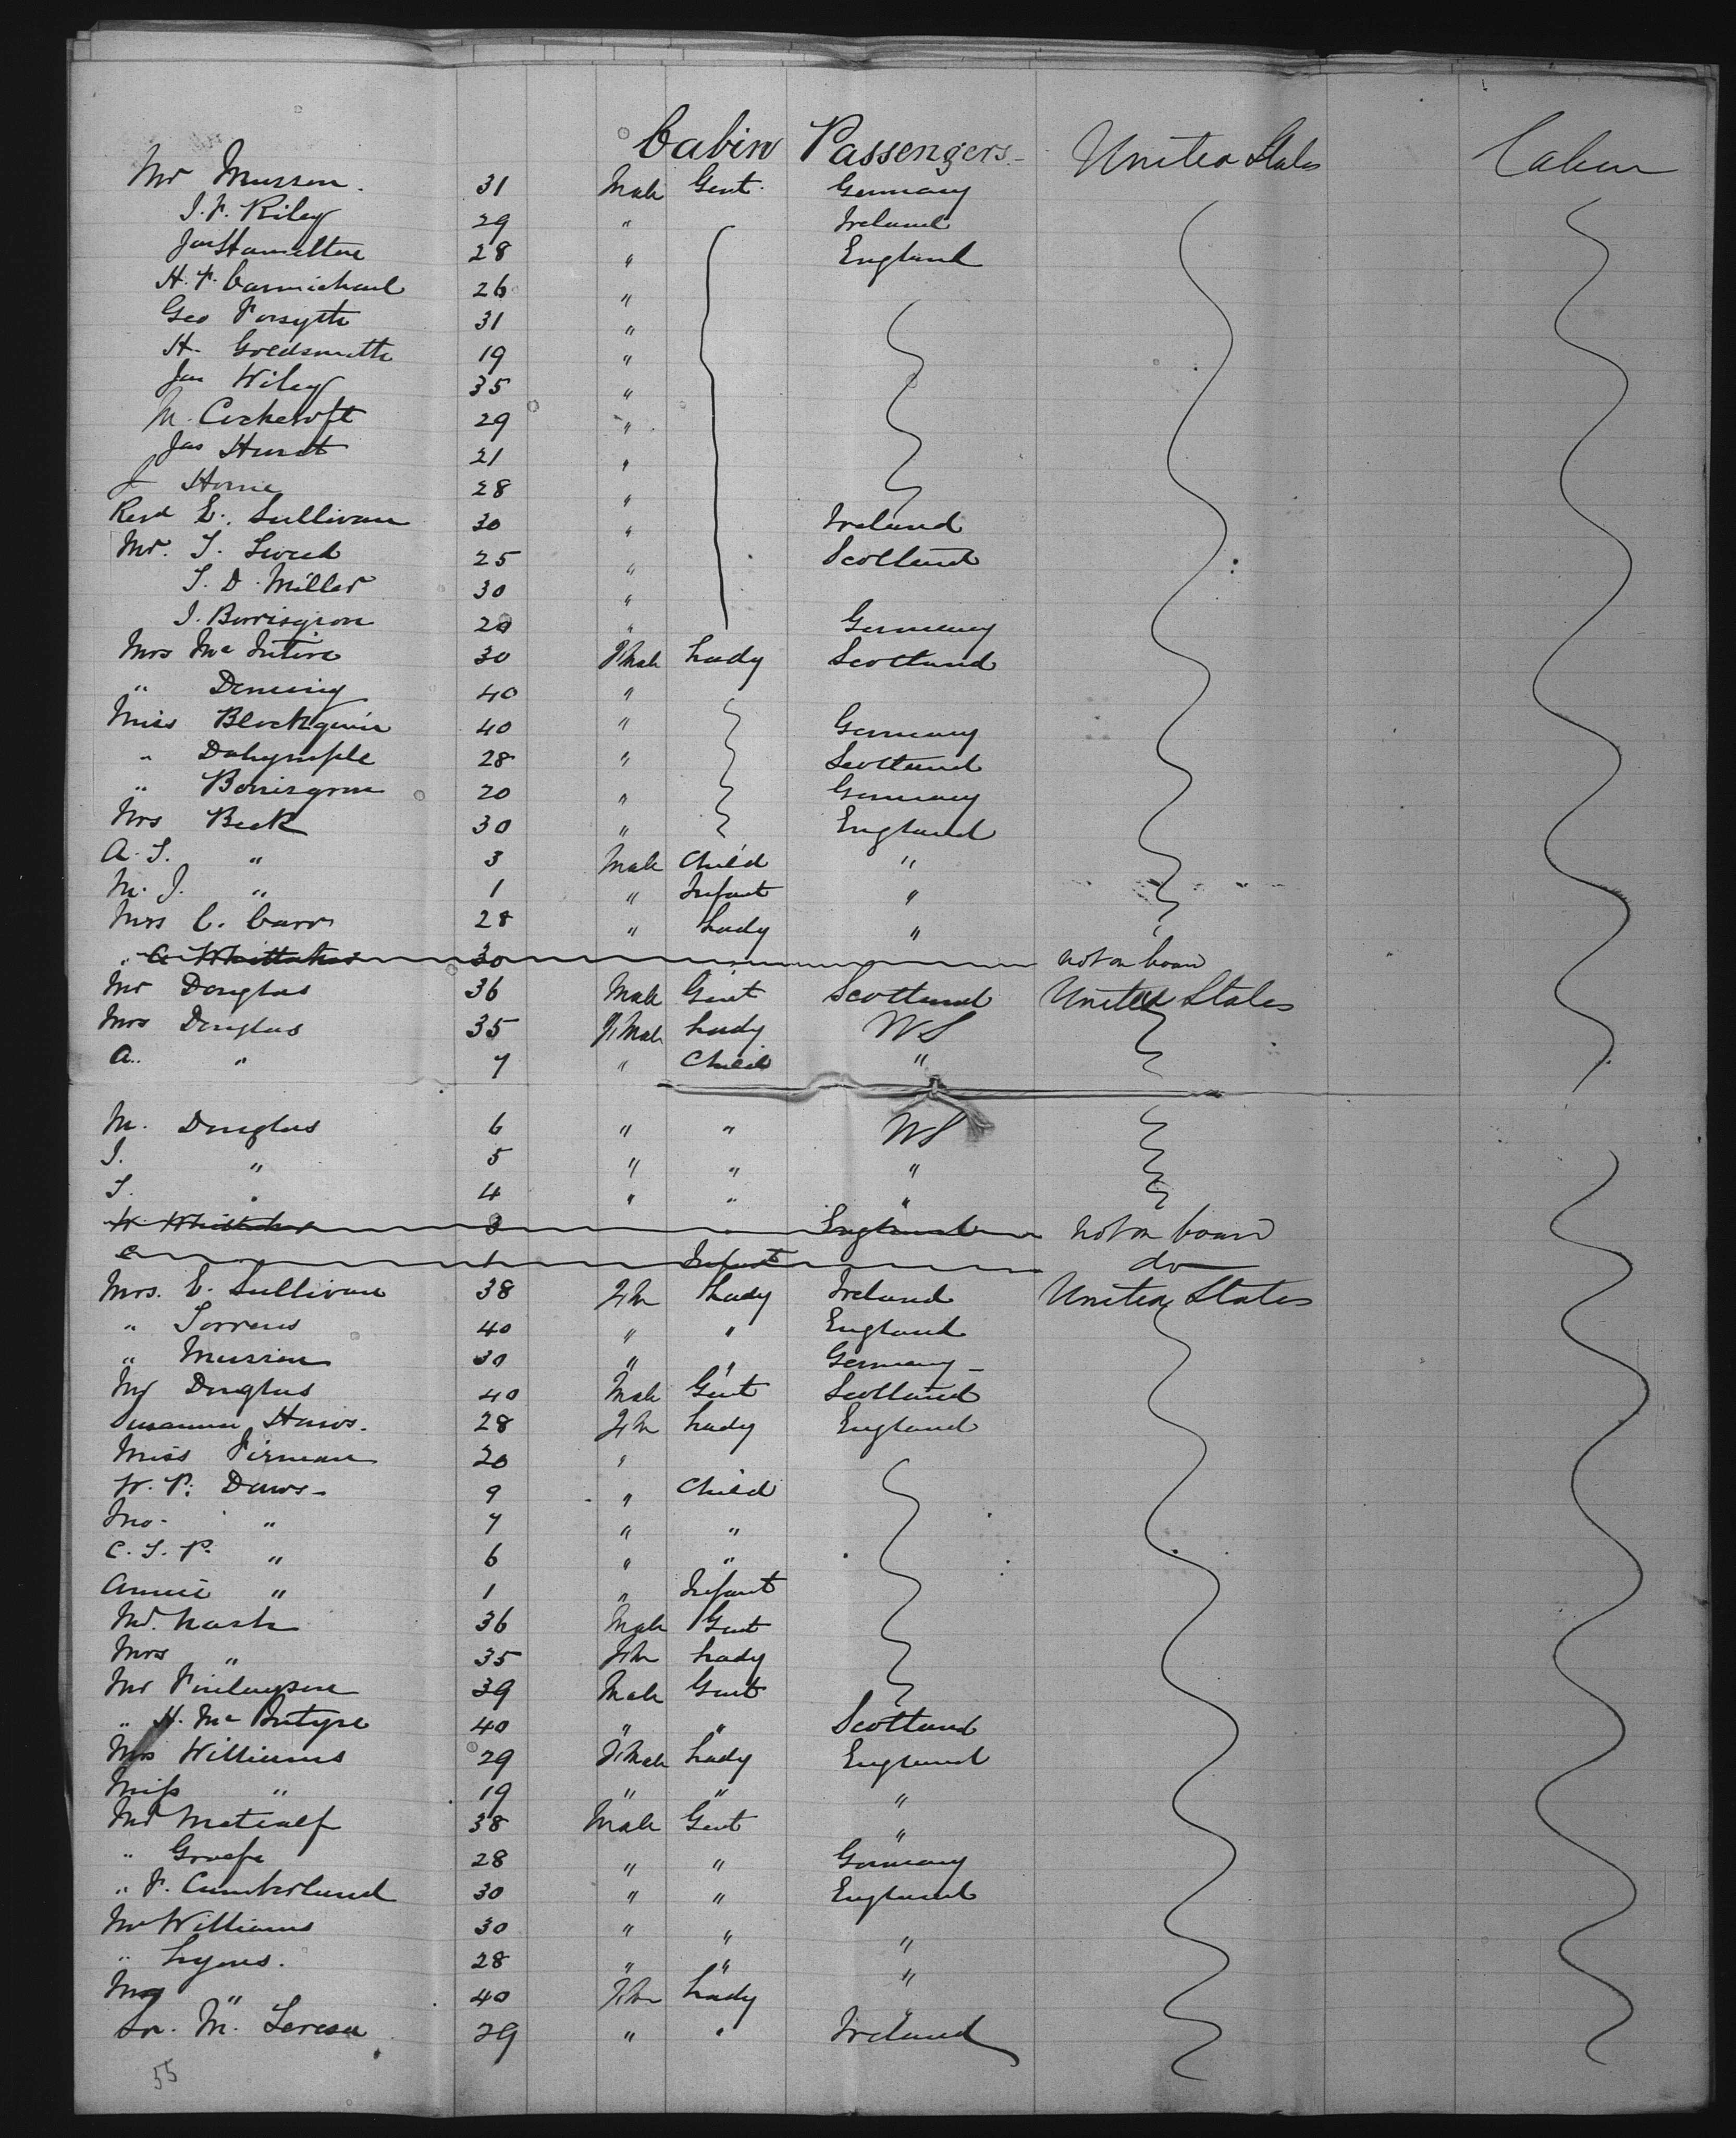 Cabin Passengers United States Cabin
Mr Musson. 31 Male Gent. Germany
J. F. Riley 29 " Ireland
Jas Hamilton 28 " England
H. F. Carmichael 26 "
Geo Forsyth 31 "
H. Goldsmith 19 "
Jas Wiley 35 "
M. Cockcroft 29 "
Jas Hurst 21 "
J Horne 28 "
Revd E. Sullivan 30 " Ireland
Mr. T. 25 " Scotland
T. D. Miller 30 "
J. 20 " Germany
Mrs McIntire 30 F.Male Lady Scotland
" Deming 40 "
Miss 40 " Germany
" Dalrymple 28 " Scotland
" 20 " Germany
Mrs Beck 30 " England
A. S. " 3 Male Child "
M. J. " 1 " Infant "
Mrs C. Carr 28 " Lady "
" A Whittaker 30 not on board
Mr Douglas 36 Male Gent Scotland United States
Mrs Douglas 35 F.Male Lady US
A. " 7 " Child "
M. Douglas 6 " " US
J. " 5 " " "
S. " 4 " " "
W Whittaker 3 England not on board
C 1 Infant do
Mrs. E. Sullivan 38 F.M Lady Ireland United States
" Torrens 40 " " England
" Musson 30 " " Germany
Mr Douglas 40 Male Gent Scotland
Susanna 28 F.M Lady England
Miss Firman 20 "
W. P. Daws 9 " Child
Jno. " 7 " "
C. S. P. " 6 " "
Annie " 1 " Infant
Mr. Nash 36 Male Gent
Mrs " 35 F.M Lady
Mr Finlayson 39 Male Gent
" H. McIntyre 40 " " Scotland
Mrs Williams 29 F.Male Lady England
Miss " 19 " " "
Mr Metcalf 38 Male Gent "
" Graefe 28 " " Germany
" F. Cumberland 30 " " England
Mr Williams 30 " " "
" Lyons. 28 " " "
Mrs " 40 F.M Lady "
Sr. M. Teresa 29 " " Ireland
55